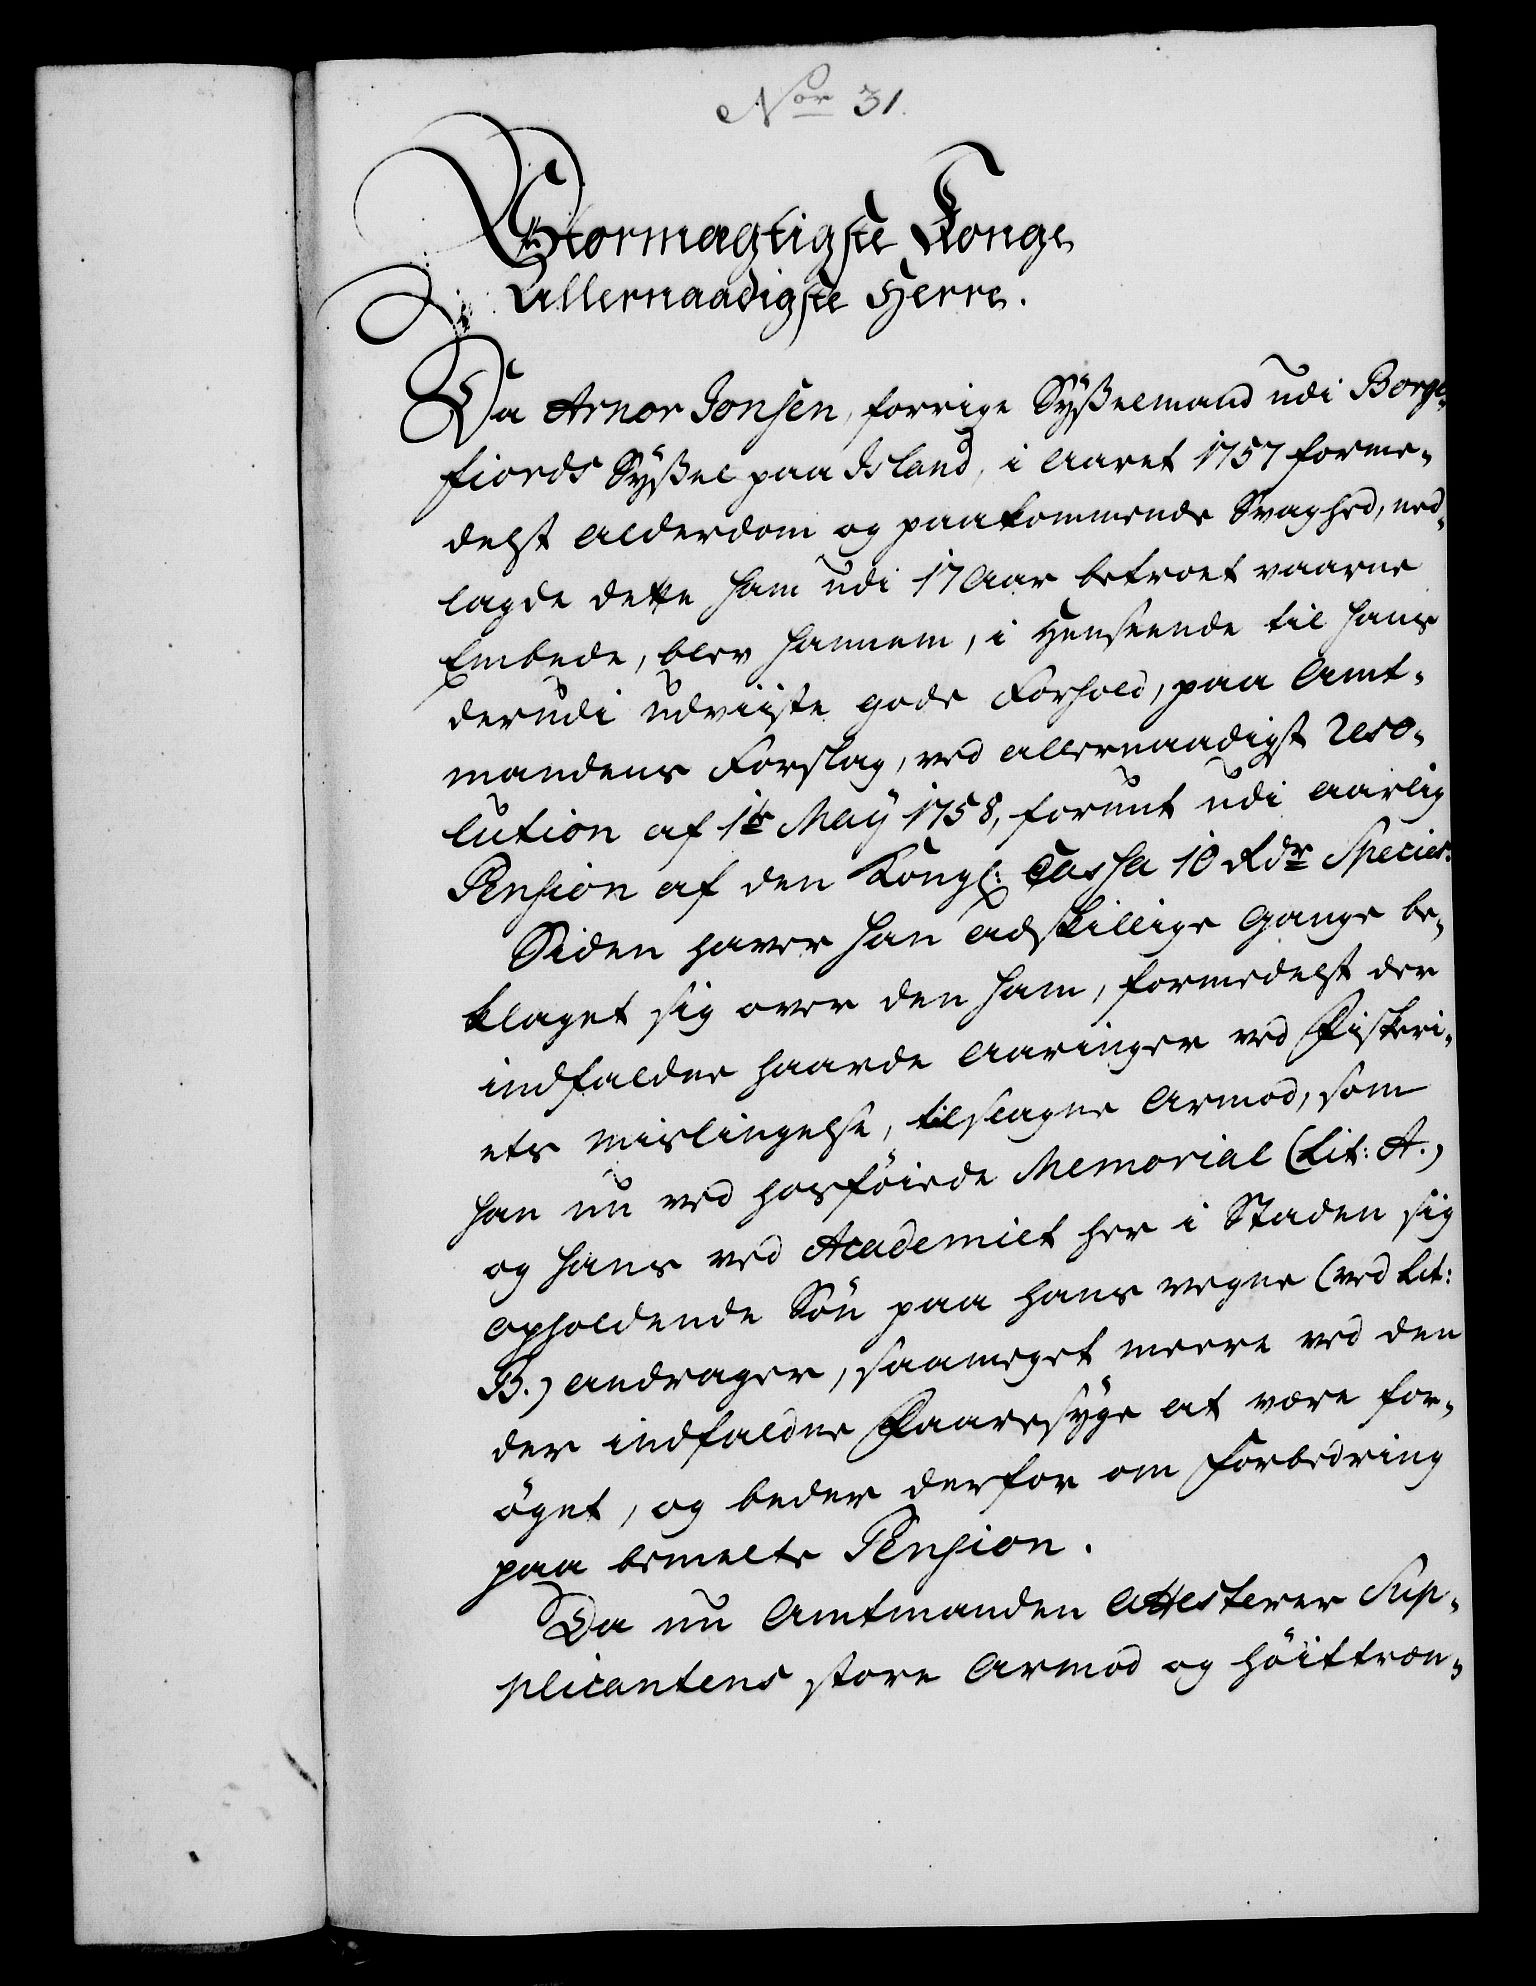 Nor 31.
Stormægtigste Konge
Allernaadigste Herre.
Da Arnor Jonsen, forrige Sysselmand udi Borge-
fiords Syssel paa Island, i Aaret 1757 forme-
delst Alderdom og paakommende Svaghed, ned-
lagde dette ham udi 17 Aar betroet værne
Embede, blev hannem, i Henseende til hans
derudi udviiste gode Forhold, paa Amt-
mandens Forslag, ved allernaadigst Reso-
lution af 1te May 1758, forunt udi aarlig
Pension af den Kongl: Cassa 10 Rdr Species.
Siden haver han adskillige Gange be-
klaget sig over den ham, formedelst der
indfaldne haarde Aaringer ved Fiskeri-
ets Mislingelse, tilslagne Armod, som
han nu ved hosföiede Memorial (Lit: A.)
og hans ved Academiet her i Staden sig
opholdende Sön paa hans vegne (ved Lit:
B.) andrager, saameget meere ved den
der indfaldne Faaresyge at være for-
öget, og beder derfor om Forbedring
paa bemelte Pension.
Da nu Amtmanden Attesterer Sup-
plicantens store Armod og höittræn-